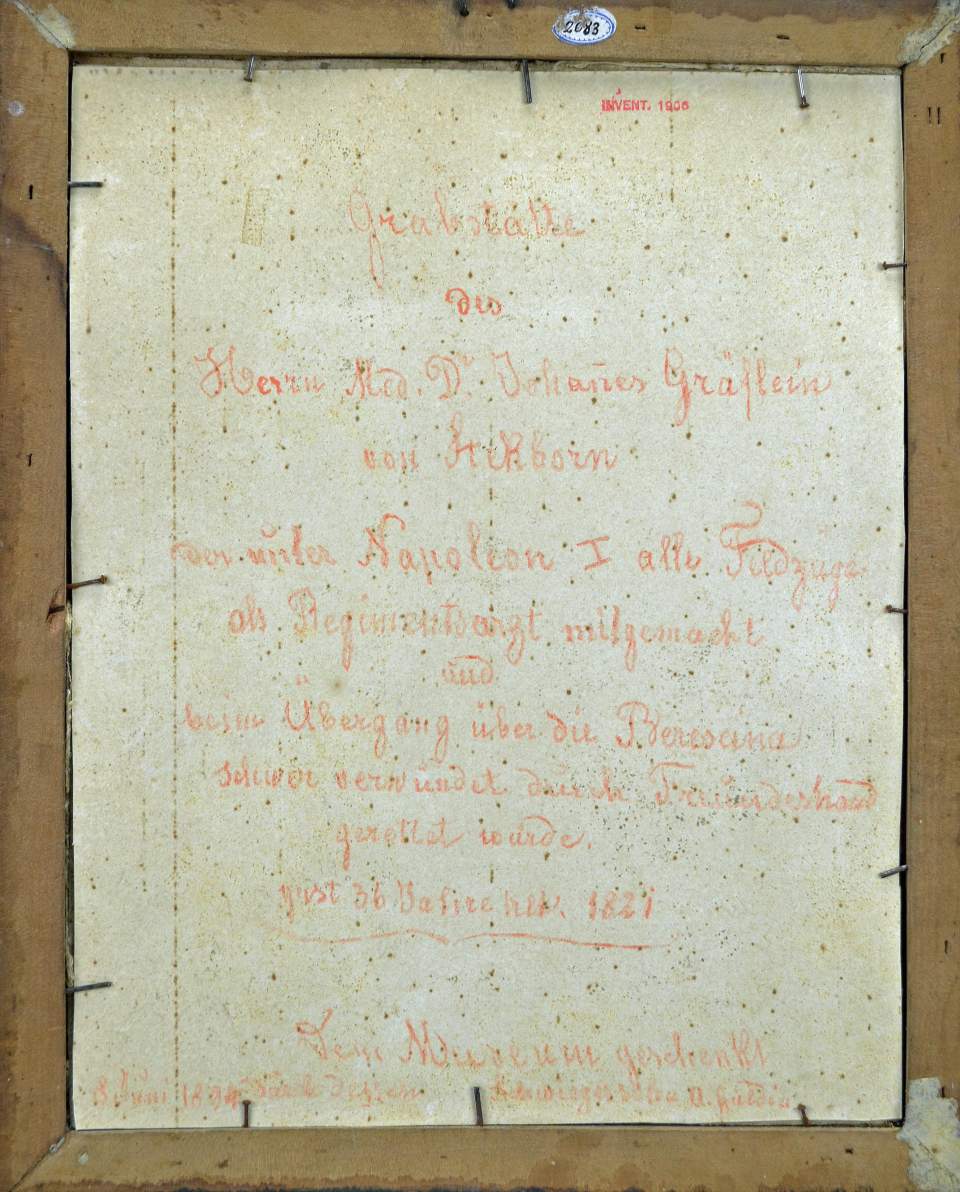 2083
INVENT. 1906
Grabstätte
des
Herrn Med. Dr. Johan̅es Gräflein
von Stekborn
der unter Napoleon I alle Feldzüge
als Regimentsarzt mitgemacht
und
beim Übergang über die Beresina
schwer verwundet durch Freundeshand
gerettet wurde.
gest 36 Jahre alt. 1821
Dem Museum geschenkt
8 Juni 1894 durch dessen Schwiegersohn